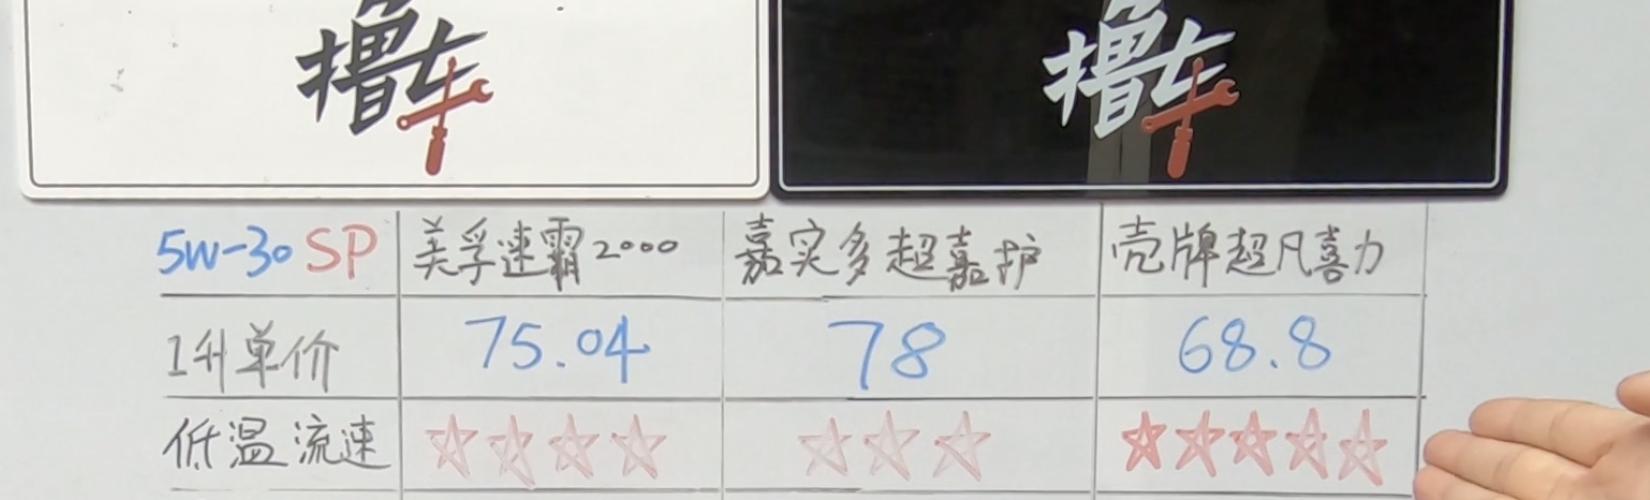 撸车
撸车
5W-30 SP 美孚速霸2000 嘉实多超嘉护 壳牌超凡喜力
1升单价 75.04 78 68.8
低温流速 ☆☆☆☆ ☆☆☆ ☆☆☆☆☆